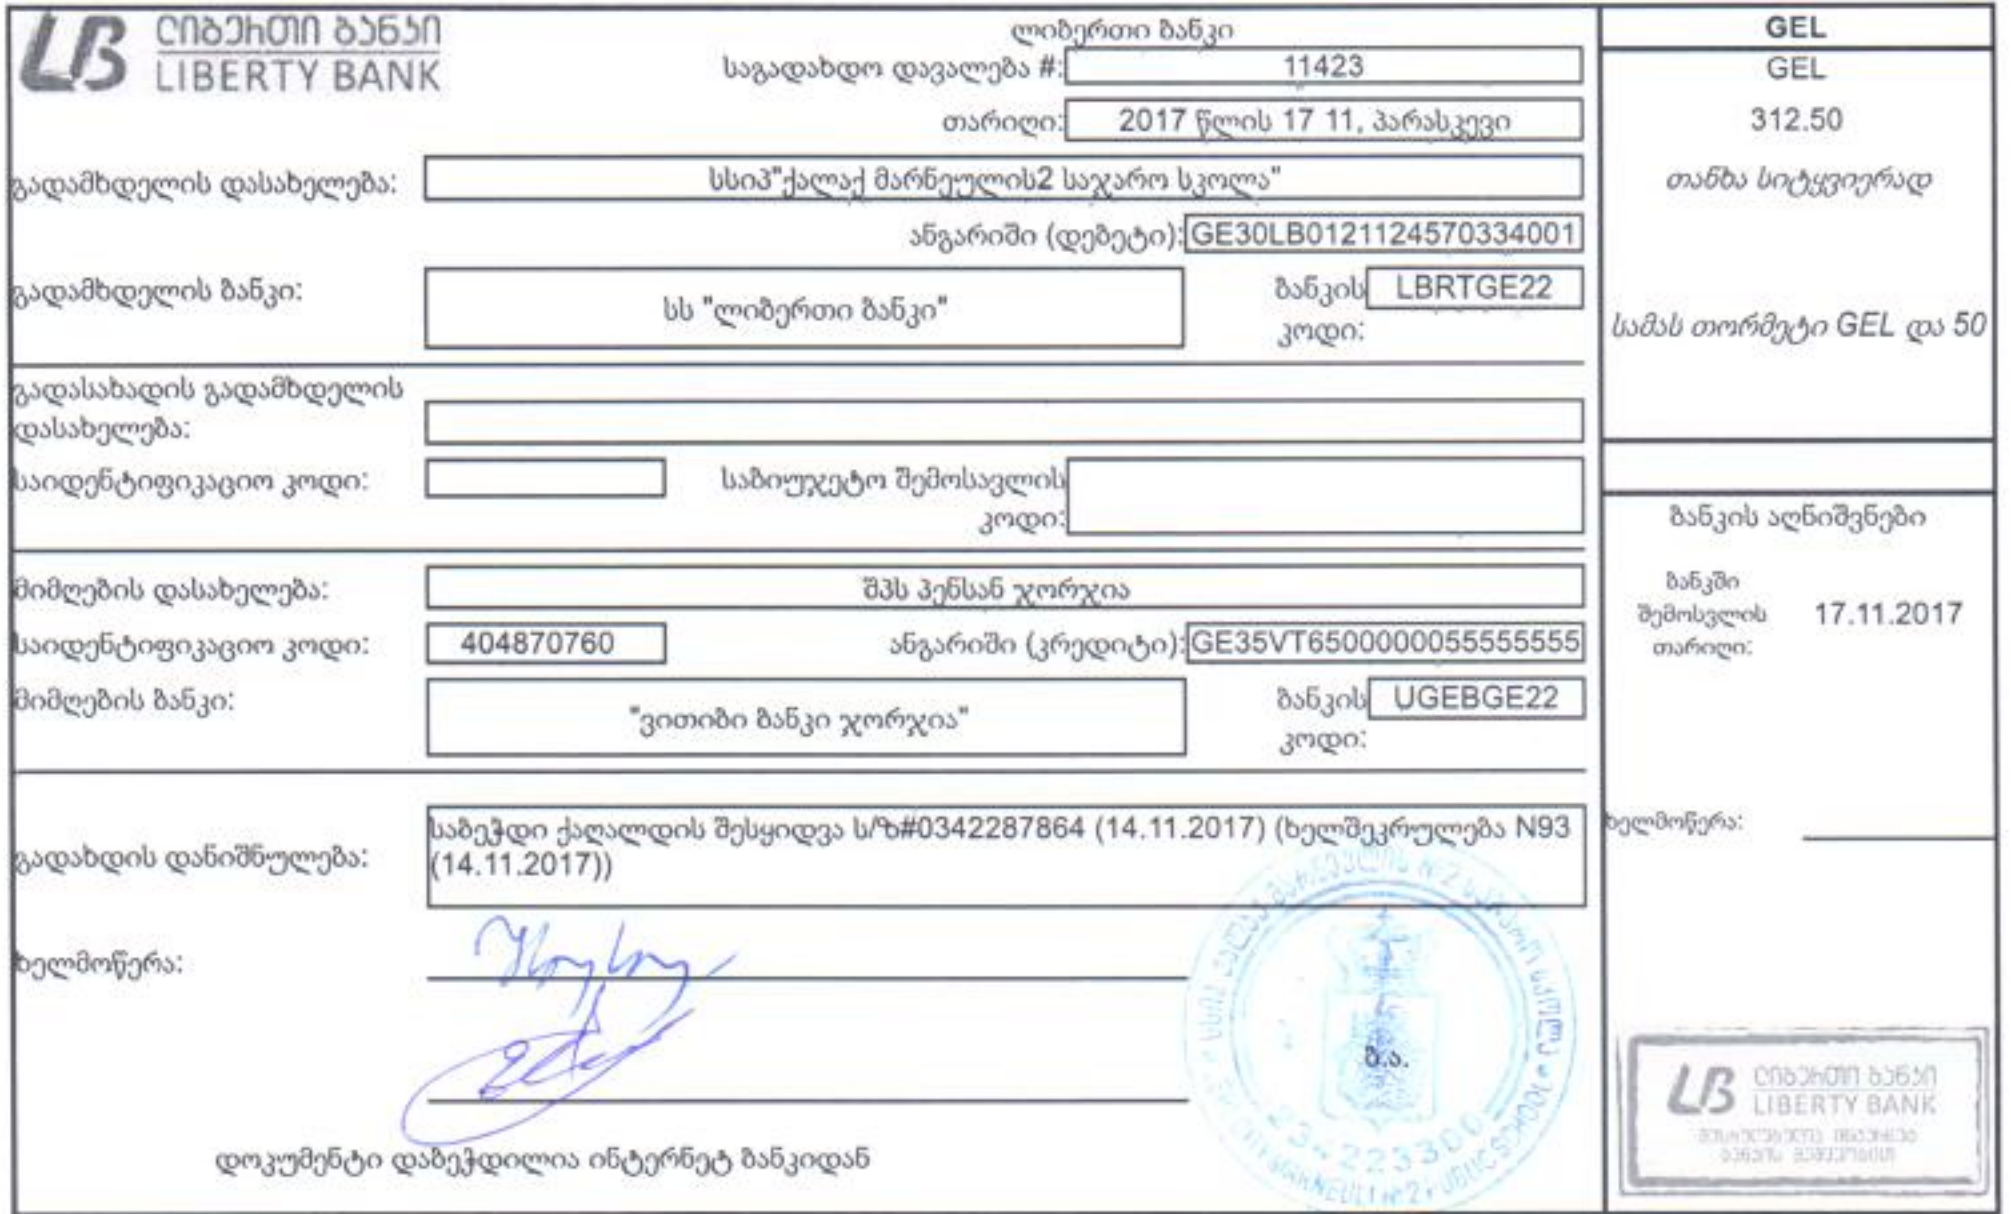 ლიბერთი ბანკი
LIBERTY BANK
ლიბერთი ბანკი
საგადახდო დავალება #: 11423
თარიღი: 2017 წლის 17 11, პარასკევი
გადამხდელის დასახელება: სსიპ"ქალაქ მარნეულის2 საჯარო სკოლა"
ანგარიში (დებეტი): GE30LB0121124570334001
გადამხდელის ბანკი: სს "ლიბერთი ბანკი" ბანკის LBRTGE22
კოდი:
გადასახადის გადამხდელის
დასახელება:
საიდენტიფიკაციო კოდი: საბიუჯეტო შემოსავლის
კოდი:
მიმღების დასახელება: შპს პენსან ჯორჯია
საიდენტიფიკაციო კოდი: 404870760 ანგარიში (კრედიტი): GE35VT6500000055555555
მიმღების ბანკი: "ვითიბი ბანკი ჯორჯია" ბანკის UGEBGE22
კოდი:
გადახდის დანიშნულება: საბეჭდი ქაღალდის შესყიდვა ს/ზ#0342287864 (14.11.2017) (ხელშეკრულება N93
(14.11.2017))
ხელმოწერა:
ბ.ა.
დოკუმენტი დაბეჭდილია ინტერნეტ ბანკიდან
GEL
GEL
312.50
თანხა სიტყვიერად
სამას თორმეტი GEL და 50
ბანკის აღნიშვნები
ბანკში
შემოსვლის 17.11.2017
თარიღი:
ხელმოწერა:
ლიბერთი ბანკი
LIBERTY BANK